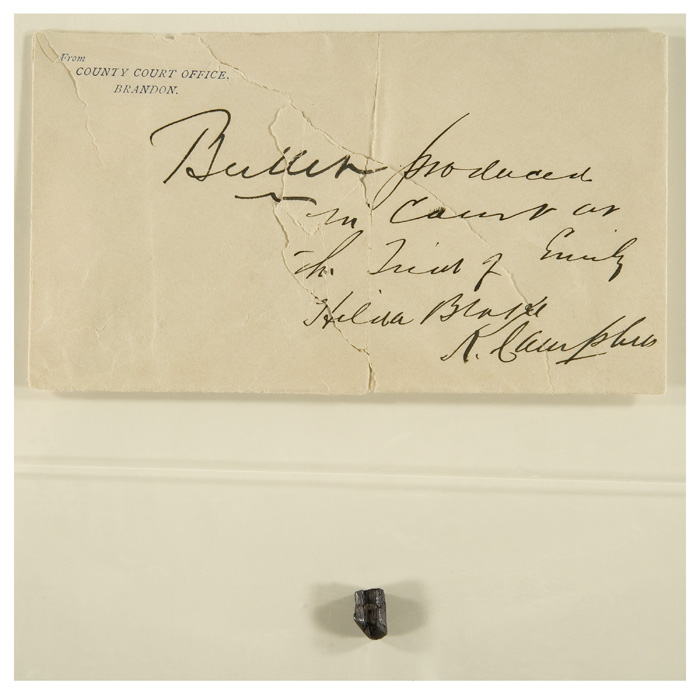 From
COUNTY COURT OFFICE,
BRANDON.
Bullet produced
in Court at
the Trial of Emily
Hilda Blake
K. Campbell